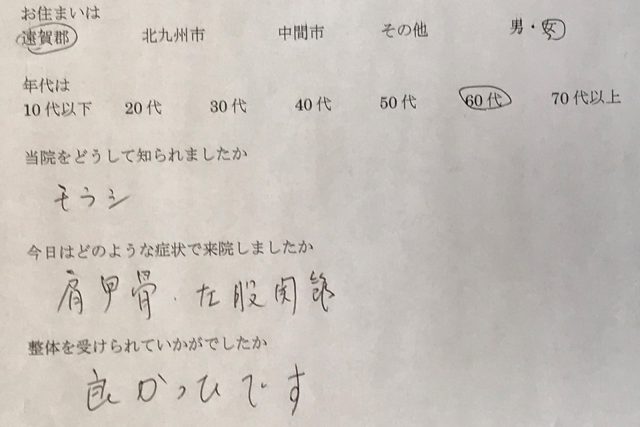 お住まいは
遠賀郡 北九州市 中間市 その他 男・女
年代は
10代以下 20代 30代 40代 50代 60代 70代以上
当院をどうして知られましたか
モラシ
今日はどのような症状で来院しましたか
肩甲骨、左股関節
整体を受けられていかがでしたか
良かったです